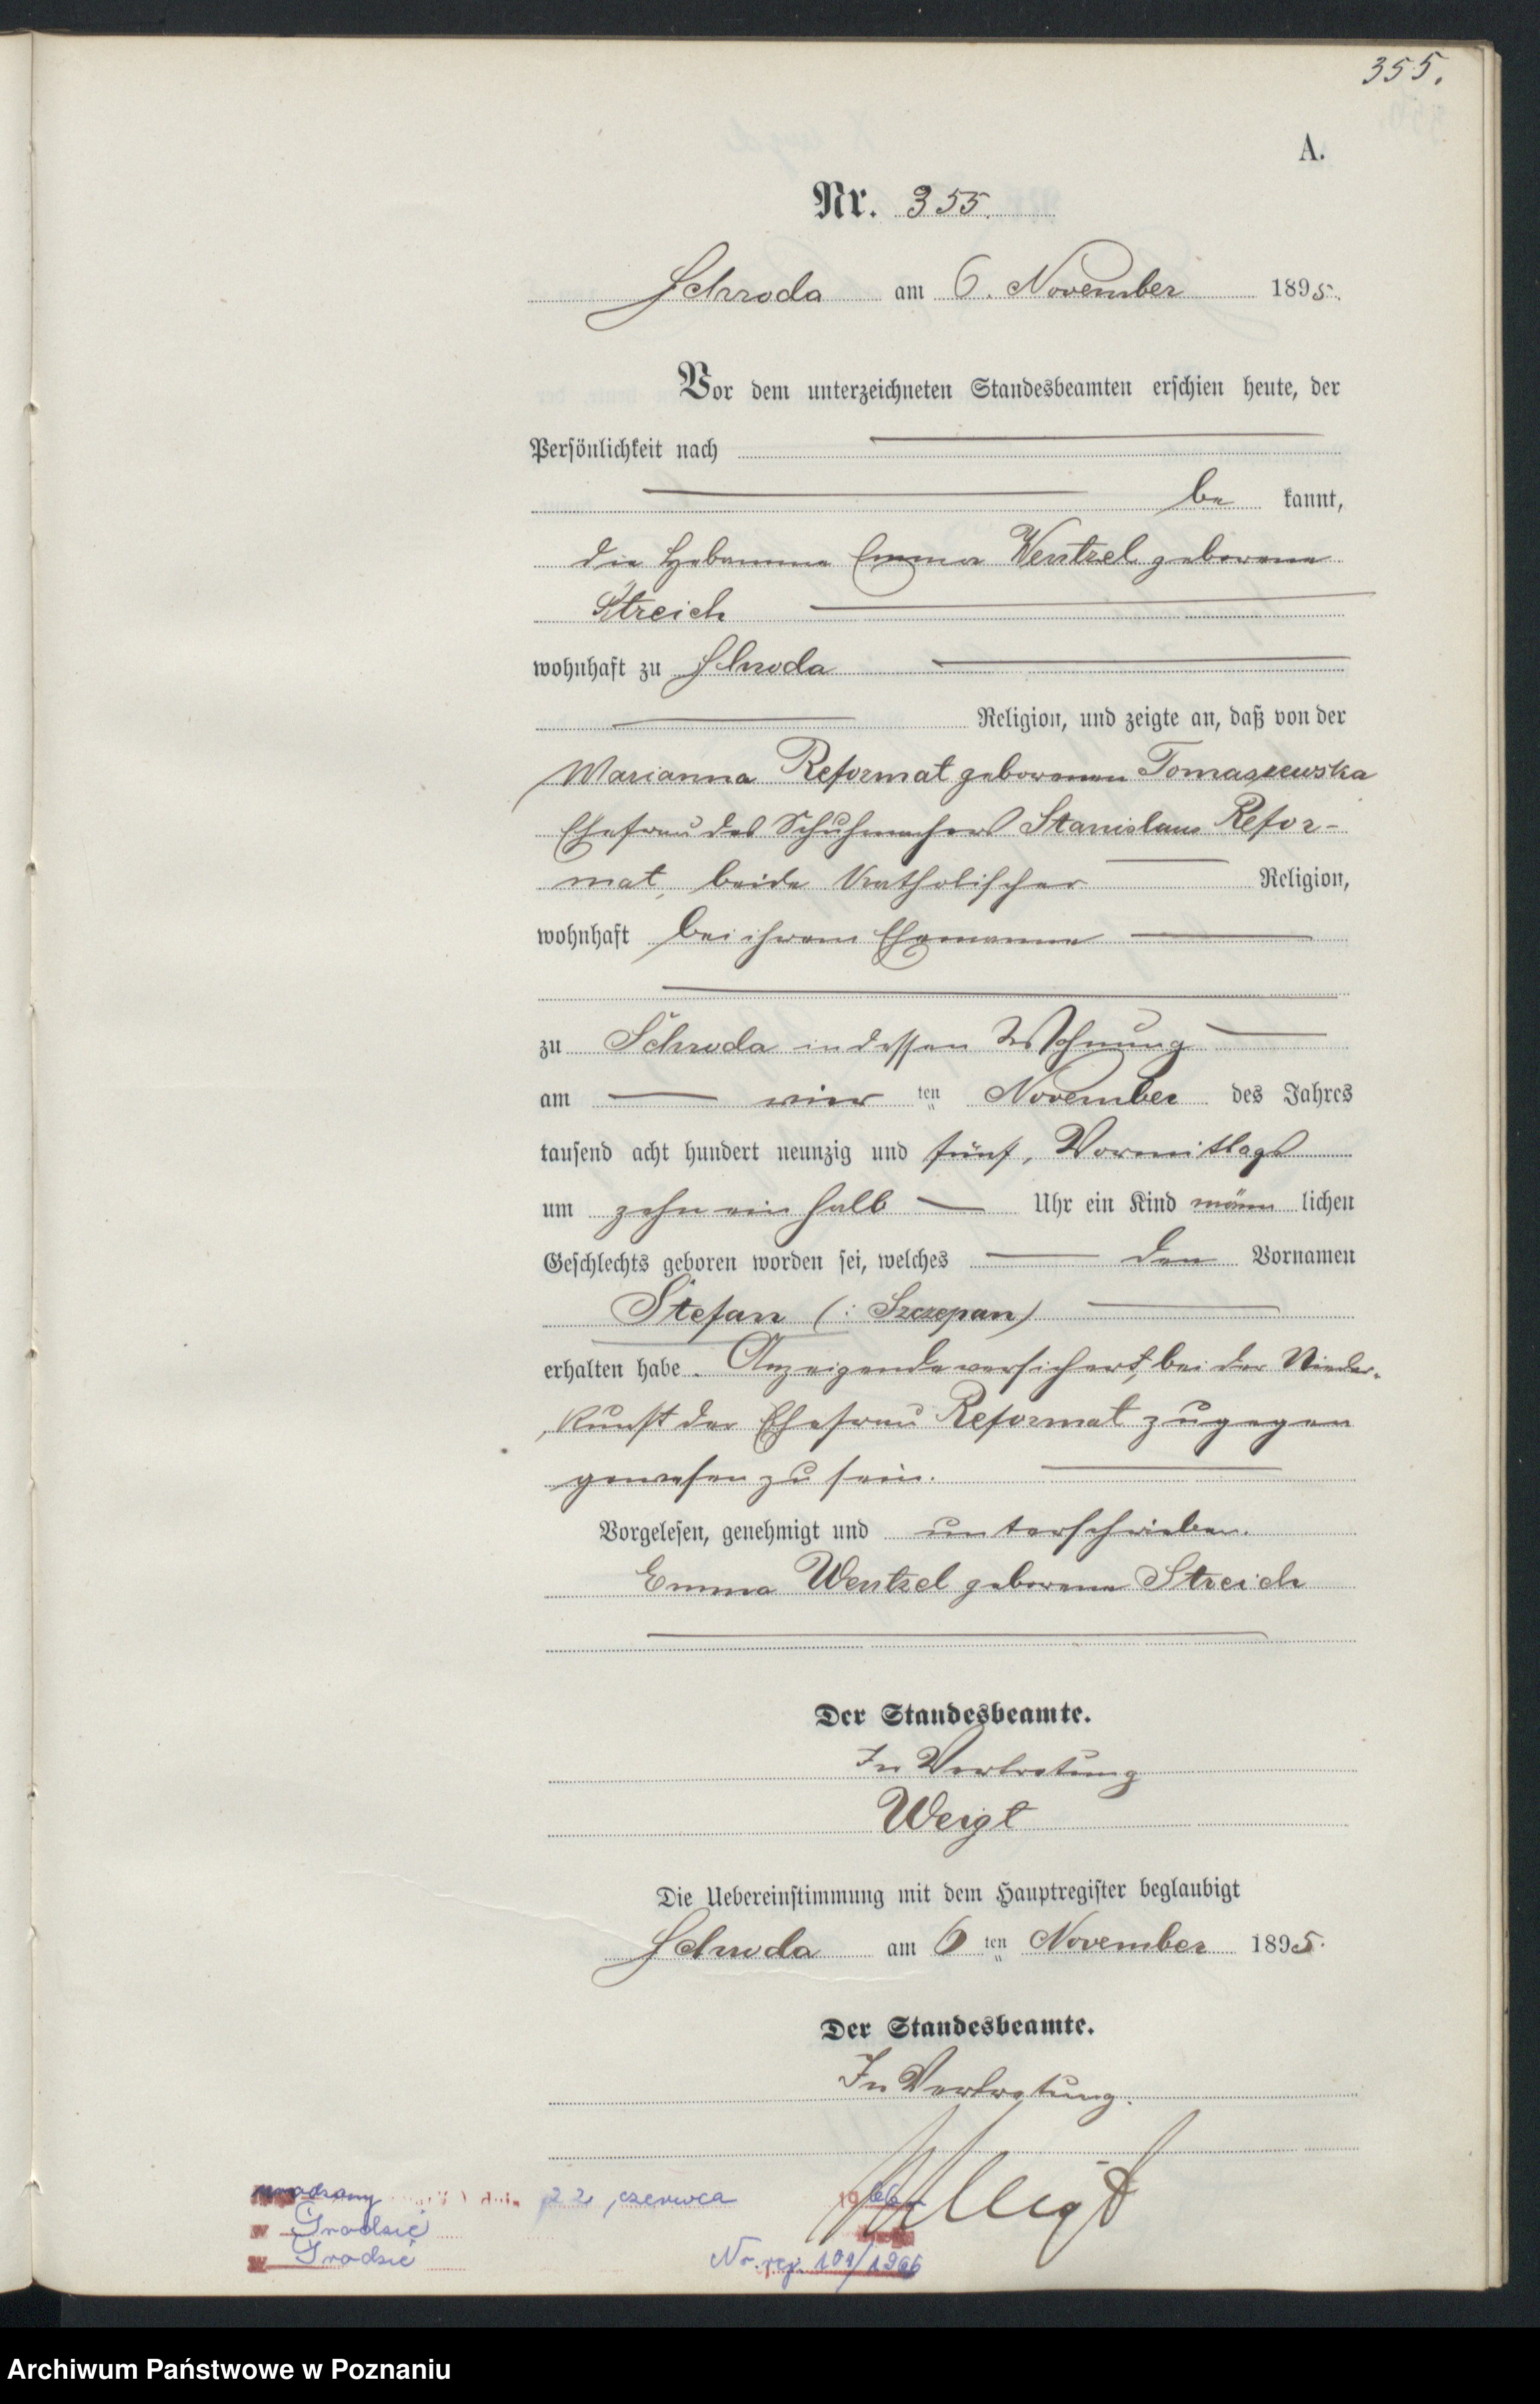 355.
A.
Nr. 355.
Schroda am 6. November 1895.
Vor dem unterzeichneten Standesbeamten erschien heute, der
Persönlichkeit nach
be kannt,
die Hebamme Emma Wentzel geborene
Streich
wohnhaft zu Schroda
Religion, und zeigte an, daß von der
Marianna Reformat geborenen Tomaszewska
Ehefrau des Schuhmachers Stanislaus Refor-
mat, beide katholischer Religion,
wohnhaft bei ihrem Ehemanne
zu Schroda in dessen Wohnung
am vier ten November des Jahres
tausend acht hundert neunzig und fünf, Vormittags
um zehn ein halb Uhr ein Kind männ lichen
Geschlechts geboren worden sei, welches den Vornamen
Stefan (: Szczepan)
erhalten habe. Anzeigende versichert, bei der Nieder-
kunft der Ehefrau Reformat zugegen
gewesen zu sein.
Vorgelesen, genehmigt und unterschrieben.
Emma Wentzel geborene Streich
Der Standesbeamte.
In Vertretung
Weigt
Die Uebereinstimmung mit dem Hauptregister beglaubigt
Schroda am 6 ten November 1895.
Der Standesbeamte.
In Vertretung.
Weigt
dnia 22 czerwca 1966
w Grodzić
w Grodzić
Nr. rej. 101/1966
Archiwum Państwowe w Poznaniu